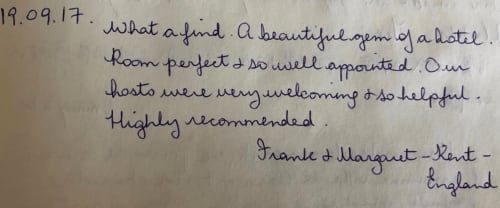 19.09.17.
What a find. A beautiful gem of a hotel.
Room perfect & so well appointed. Our
hosts were very welcoming & so helpful.
Highly recommended.
Frank & Margaret - Kent -
England